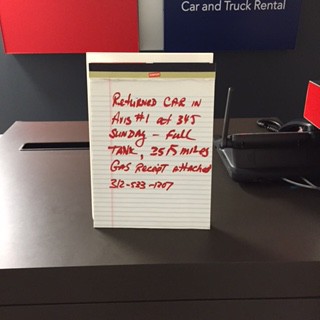 Car and Truck Rental
RETURNED CAR IN
AVIS #1 at 345
SUNDAY - Full
TANK, 3515 miles
GAS RECEIPT attached
312-523-1207